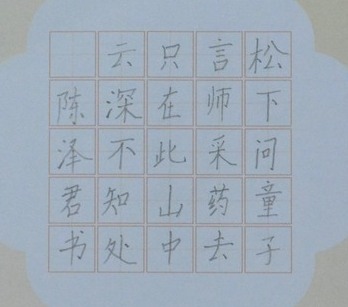 松下问童子
言师采药去
只在此山中
云深不知处
陈泽君书